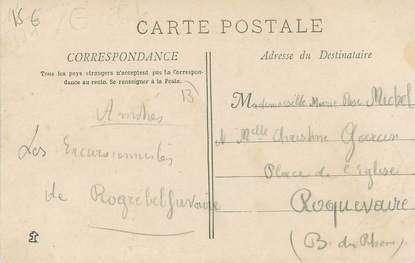 15 €
CARTE POSTALE
CORRESPONDANCE
Tous les pays étrangers n'acceptent pas la Correspon-
dance au recto. Se renseigner à la Poste.
Adresse du Destinataire
B
Amitiés
Les Excursionnistes
de
Mademoiselle Marie-Rose Michel
Melle Christine
Place de l'Eglise
Roquevaire
(B. du Rhône)